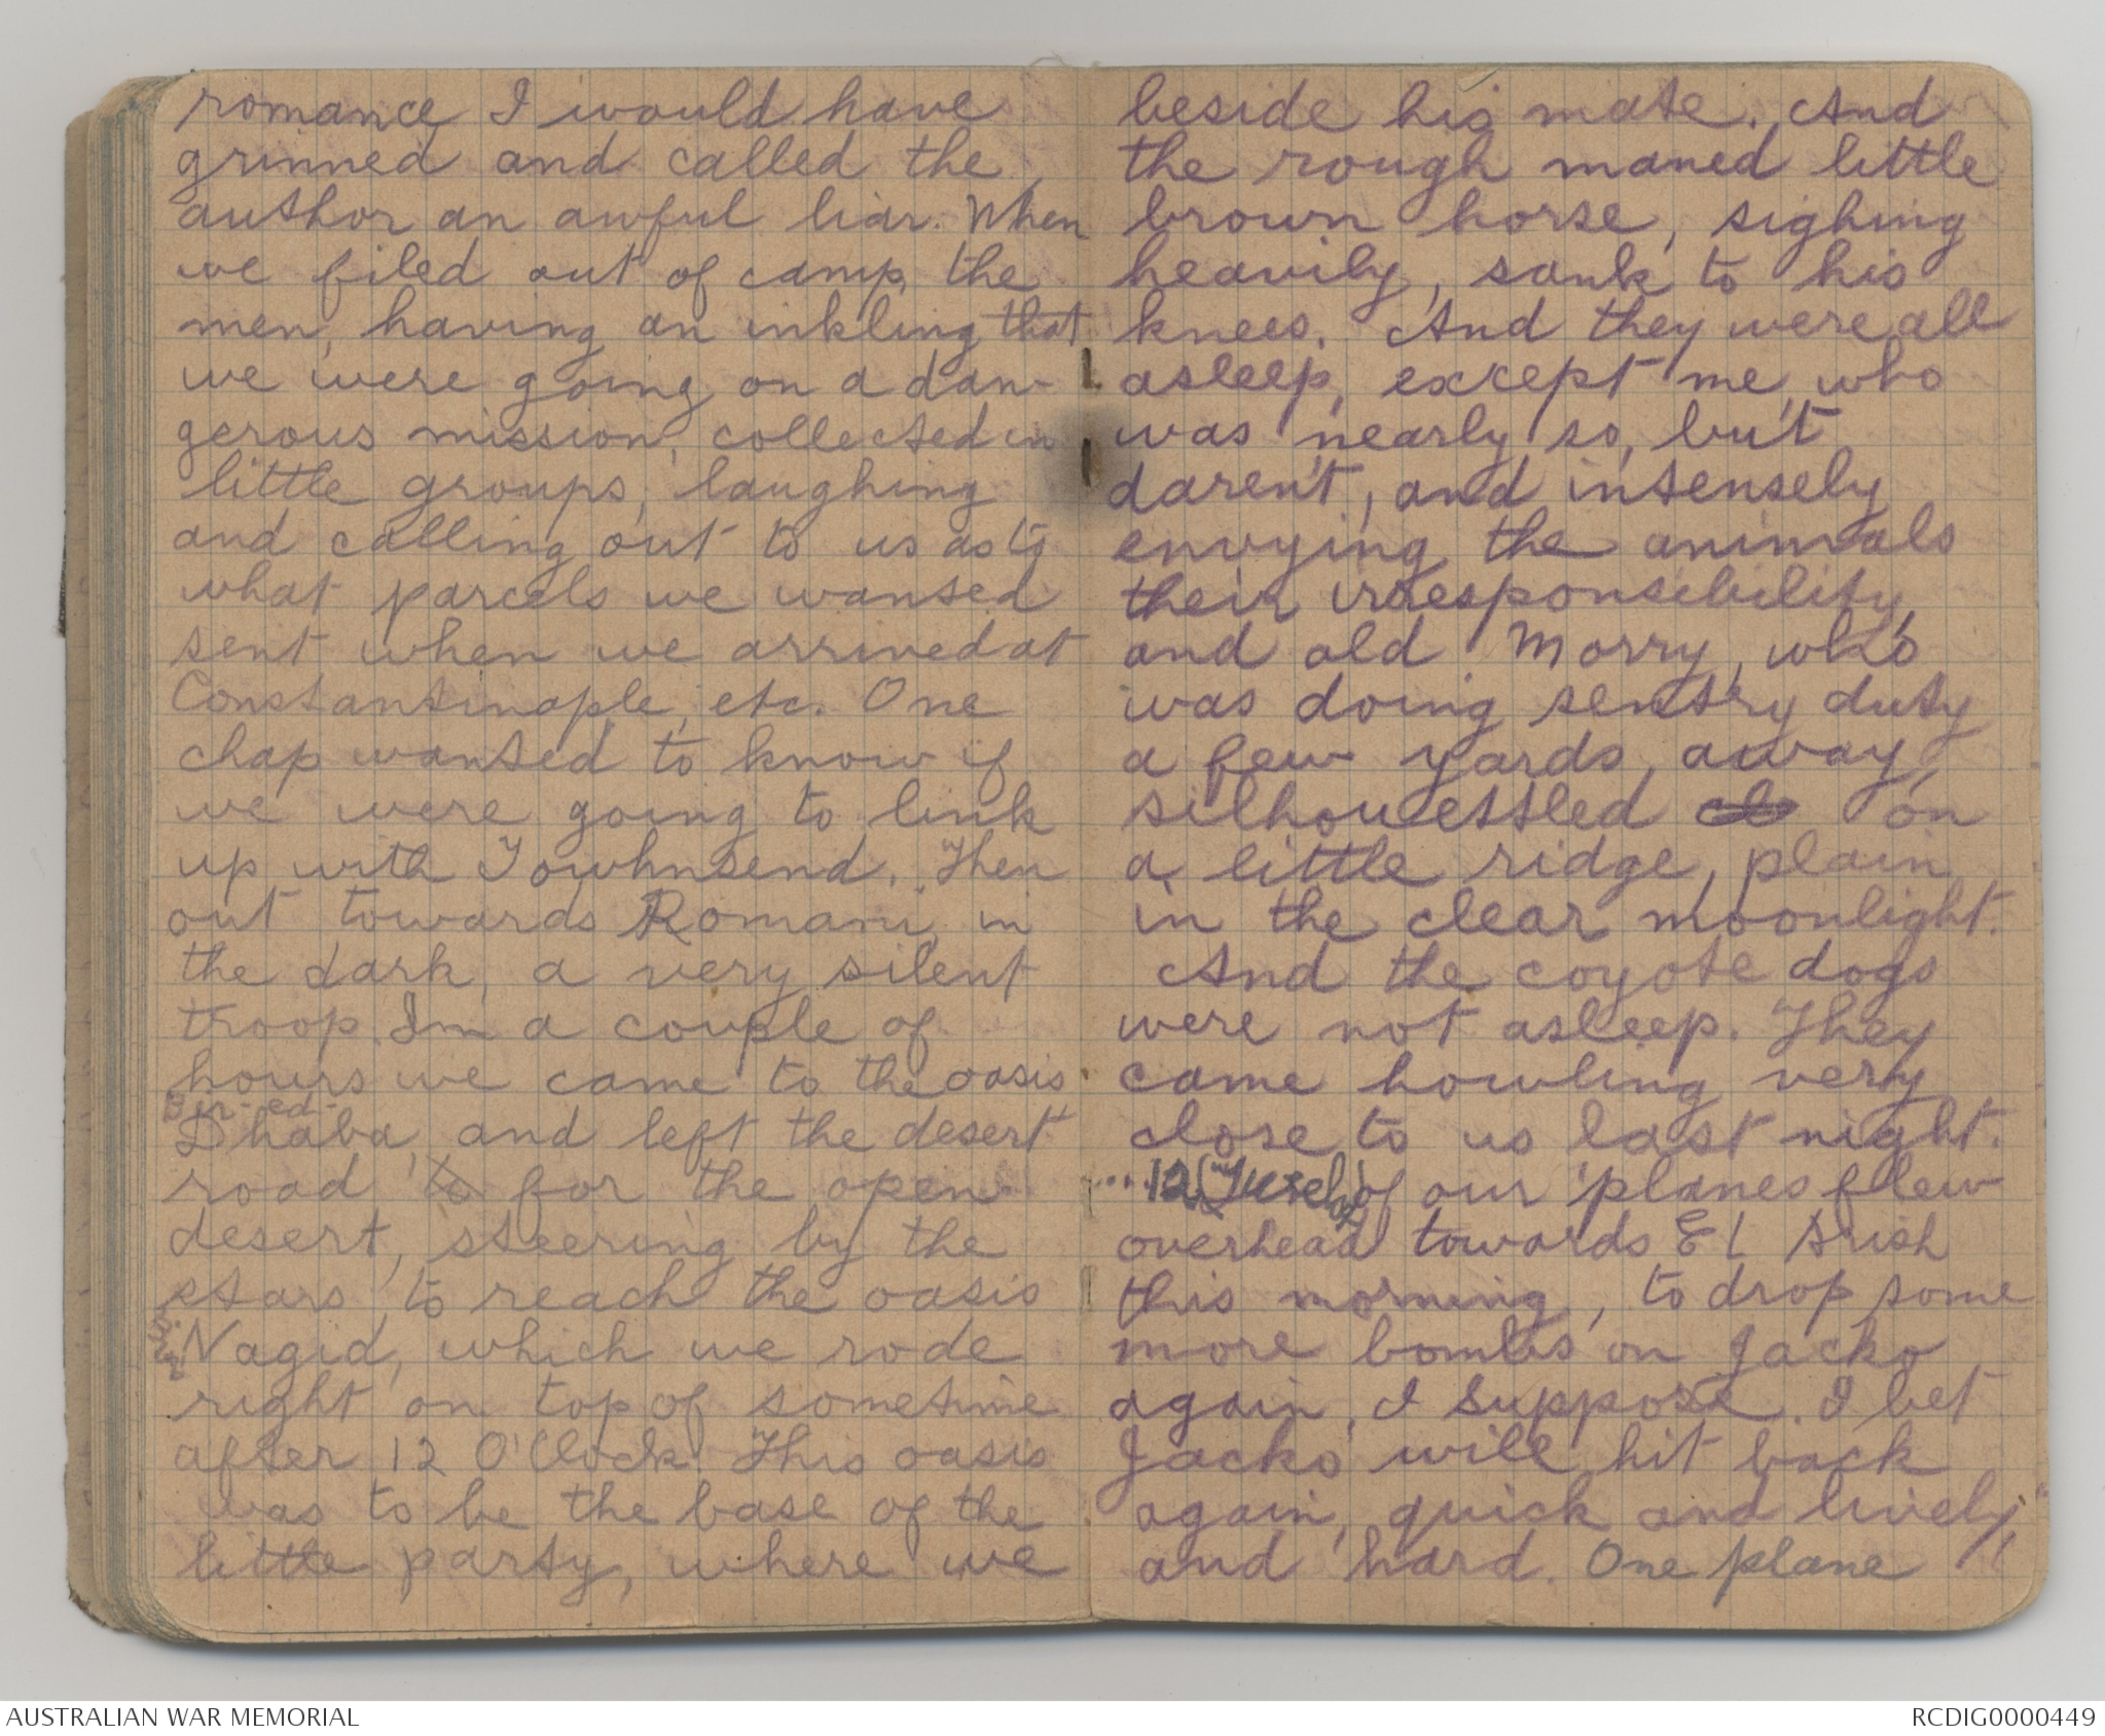 romance I would have
grinned and called the
author an awful liar. When
we filed out of camp, the
men, having an inkling that
we were going on a dan-
gerous mission, collected in
little groups, laughing
and calling out to us as to
what parcels we wanted
sent when we arrived at
Constantinople, etc. One
chap wanted to know if
we were going to link
up with Towhnsend. Then
out towards Romani, in
the dark, a very silent
troop. Im a couple of
hours we came to the oasis
Bir-ed-
Dhaba, and left the desert
road to for the open
desert, steering by the
stars to reach the oasis
Nagid, which we rode
right on top of sometime
after 12 O'Clock. This oasis
was to be the base of the
little party, where we
beside his mate. And
the rough maned little
brown horse, sighing
heavily, sank to his
knees. And they were all
asleep, except me, who
was nearly so, but
daren't, and intensely
envying the animals
their irresponsibility,
and old Morry, who
was doing sentry duty
a few yards away,
silhouettled on
a little ridge, plain
in the clear moonlight.
And the coyote dogs
were not asleep. They
came howling very
close to us last night.
....12 of our planes flew
overhead towards El Arish
this morning, to drop some
more bombs on Jacko
again, I suppose. I bet
Jacko will hit back
again, quick and lively,
and hard. One plane
AUSTRALIAN WAR MEMORIAL
RCDIG0000449